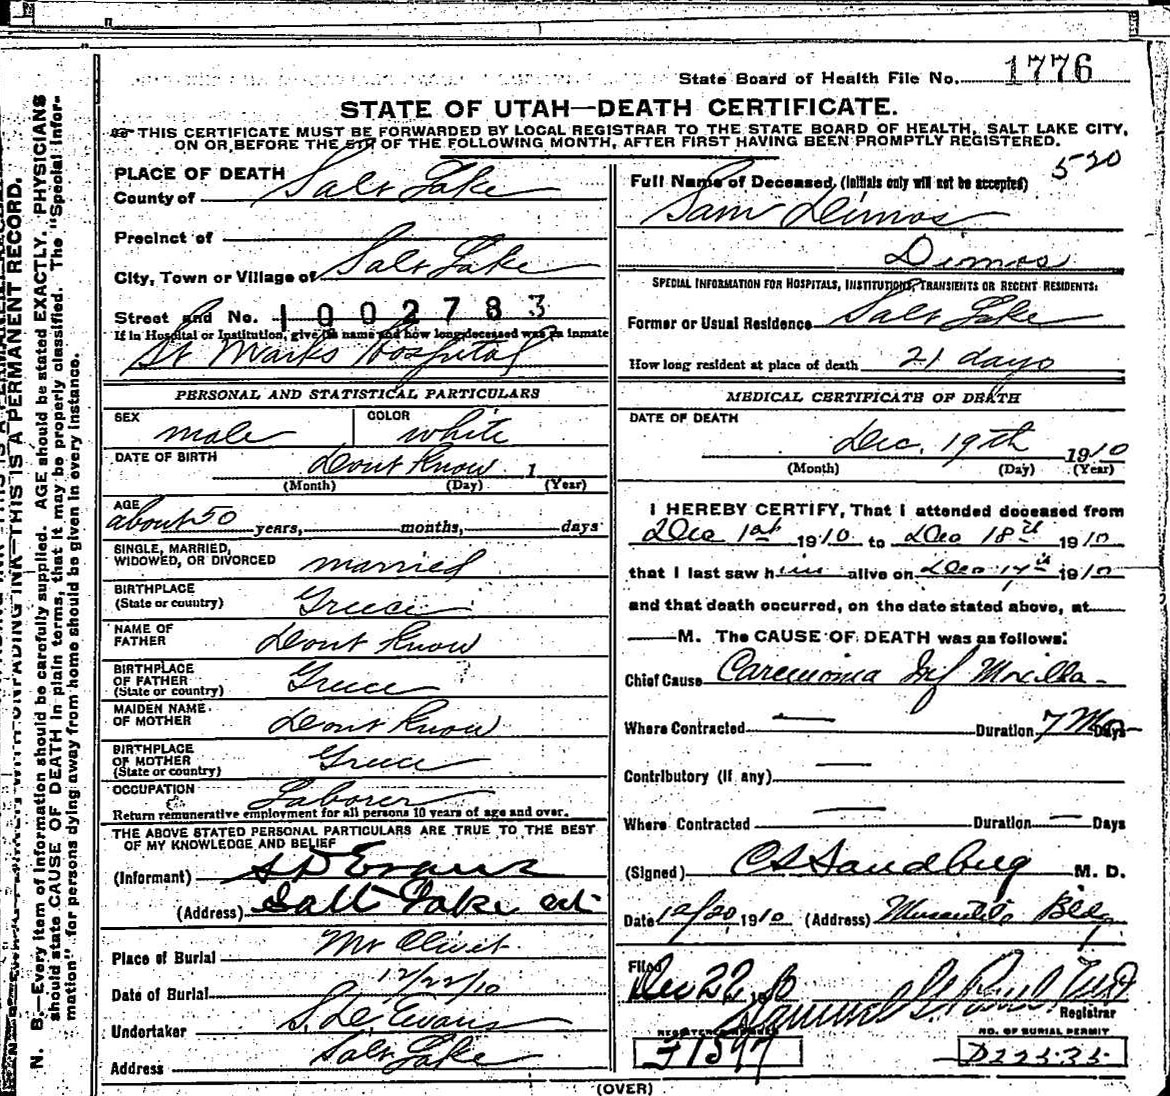 State Board of Health File No. 1776
STATE OF UTAH—DEATH CERTIFICATE.
THIS CERTIFICATE MUST BE FORWARDED BY LOCAL REGISTRAR TO THE STATE BOARD OF HEALTH, SALT LAKE CITY,
ON OR BEFORE THE 5TH OF THE FOLLOWING MONTH, AFTER FIRST HAVING BEEN PROMPTLY REGISTERED.
520
PLACE OF DEATH
County of Salt Lake
Precinct of
City, Town or Village of Salt Lake
Street and No. 1002783
If in Hospital or Institution, give its name and how long deceased was an inmate
St Marks Hospital
PERSONAL AND STATISTICAL PARTICULARS
SEX male
COLOR white
DATE OF BIRTH Dont Know 1
(Month) (Day) (Year)
AGE
about 50 years, months, days
SINGLE, MARRIED,
WIDOWED, OR DIVORCED married
BIRTHPLACE
(State or country) Greece
NAME OF
FATHER Dont Know
BIRTHPLACE
OF FATHER
(State or country) Greece
MAIDEN NAME
OF MOTHER Dont Know
BIRTHPLACE
OF MOTHER
(State or country) Greece
OCCUPATION Laborer
Return remunerative employment for all persons 10 years of age and over.
THE ABOVE STATED PERSONAL PARTICULARS ARE TRUE TO THE BEST
OF MY KNOWLEDGE AND BELIEF
(Informant) S D Evans
(Address) Salt Lake
Place of Burial Mt Olivet
Date of Burial 12/22/10
Undertaker S. D. Evans
Address Salt Lake
Full Name of Deceased, (Initials only will not be accepted)
Sam Dimos
Dimos
SPECIAL INFORMATION FOR HOSPITALS, INSTITUTIONS, TRANSIENTS OR RECENT RESIDENTS:
Former or Usual Residence Salt Lake
How long resident at place of death 21 days
MEDICAL CERTIFICATE OF DEATH
DATE OF DEATH
Dec. 19th 1910
(Month) (Day) (Year)
I HEREBY CERTIFY, That I attended deceased from
Dec 1st 1910 to Dec 18th 1910
that I last saw him alive on Dec 17th 1910
and that death occurred, on the date stated above, at
M. The CAUSE OF DEATH was as follows:
Chief Cause Carcinoma Inf Maxilla
Where Contracted — Duration 7 Mo Days
Contributory (if any) —
Where Contracted — Duration — Days
(Signed) C S Sandberg M. D.
Date 12/20 1910 (Address) Bldg
Filed
Dec 22 10
Samuel G. Paul
Registrar
REGISTERED NUMBER
NO. OF BURIAL PERMIT
D22535
(OVER)
N. B.—Every item of information should be carefully supplied. AGE should be stated EXACTLY. PHYSICIANS
should state CAUSE OF DEATH in plain terms, that it may be properly classified. The "Special Infor-
mation" for persons dying away from home should be given in every instance.
THIS IS A PERMANENT RECORD.